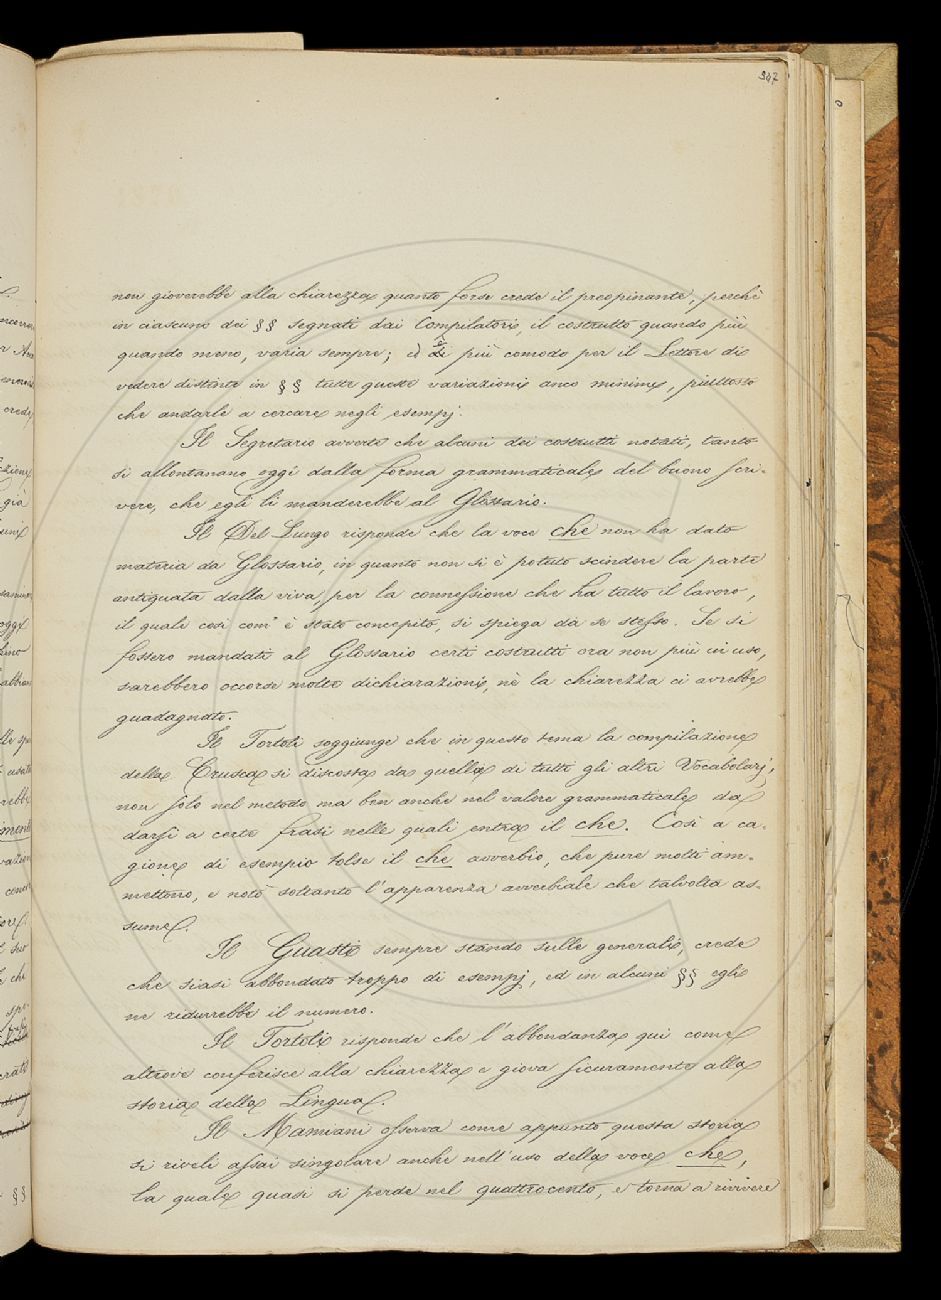 307
non gioverebbe alla chiarezza quanto forse crede il preopinante, perchè
in ciascuno dei §§ segnati dai Compilatori, il costrutto quando più
quando meno, varia sempre; ed è più comodo per il Lettore di
vedere distinte in §§ tutte queste variazioni anco minime, piuttosto
che andarle a cercare negli esempj.
Il Segretario avverte che alcuni dei costrutti notati, tanto
si allontanano oggi dalla forma grammaticale del buono scri-
vere, che egli li manderebbe al Glossario.
Il Del Lungo risponde che la voce che non ha dato
materia da Glossario, in quanto non si è potuto scindere la parte
antiquata dalla viva, per la connessione che ha tutto il lavoro,
il quale così com' è stato concepito, si spiega da se stesso. Se si
fossero mandati al Glossario certi costrutti ora non più in uso,
sarebbero occorse molte dichiarazioni, nè la chiarezza ci avrebbe
guadagnato.
Il Tortoli soggiunge che in questo tema la compilazione
della Crusca si discosta da quella di tutti gli altri Vocabolarj,
non solo nel metodo ma ben anche nel valore grammaticale da
darsi a certe frasi nelle quali entra il che. Così a ca-
gione di esempio tolse il che avverbio, che pure molti am-
mettono, e notò soltanto l'apparenza avverbiale che talvolta as-
sume.
Il Guasti sempre stando sulle generali, crede
che siasi abbondato troppo di esempj, ed in alcuni §§ egli
ne ridurrebbe il numero.
Il Tortoli risponde che l'abbondanza qui come
altrove conferisce alla chiarezza e giova sicuramente alla
storia della Lingua.
Il Mamiani osserva come appunto questa storia
si riveli assai singolare anche nell'uso della voce che,
la quale quasi si perde nel quattrocento, e torna a rivivere